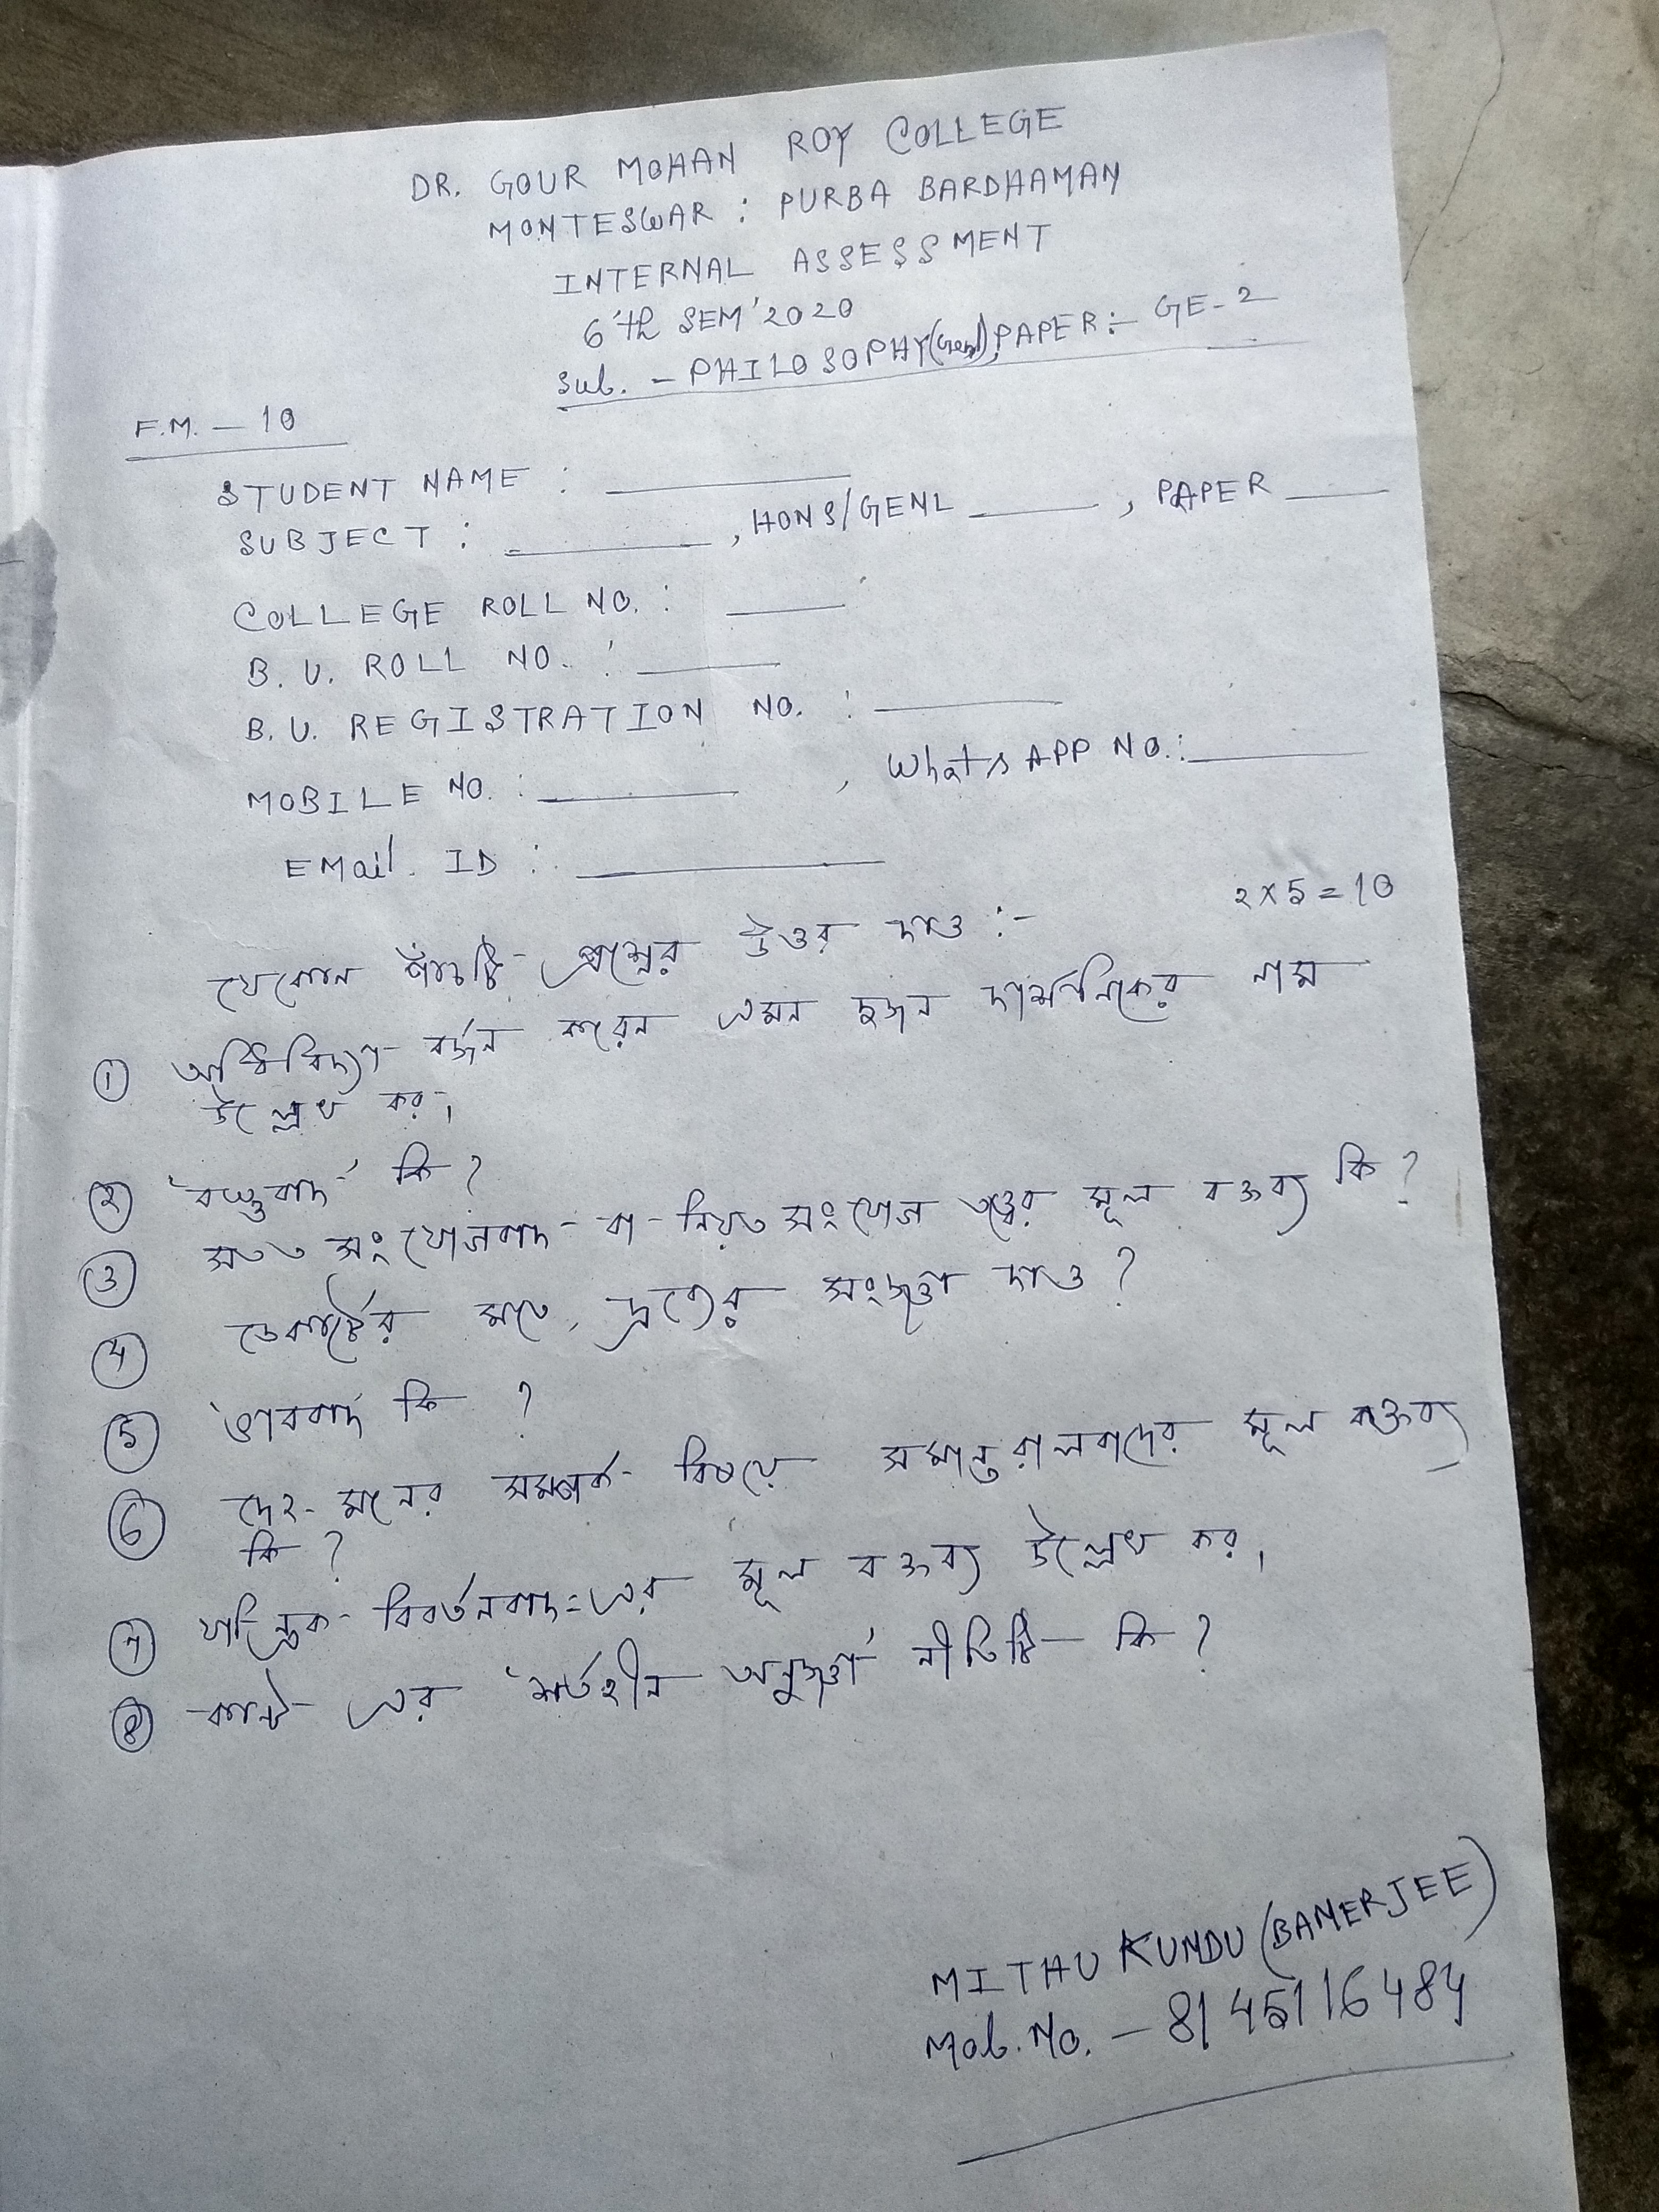 DR. GOUR MOHAN ROY COLLEGE
MONTESWAR : PURBA BARDHAMAN
INTERNAL ASSESSMENT
6'th SEM'2020
Sub. – PHILOSOPHY(Genl) PAPER:– GE-2
F.M. – 10
STUDENT NAME :
SUBJECT : , HONS/GENL , PAPER
COLLEGE ROLL NO. :
B. U. ROLL NO. :
B. U. REGISTRATION NO. :
MOBILE NO. : , What's APP NO.:
EMail. ID :
2×5=10
যেকোন পাঁচটি প্রশ্নের উত্তর দাও :-
① অধিবিদ্যা বর্জন করেন এমন দুজন দার্শনিকের নাম
উল্লেখ কর।
② 'বস্তুবাদ' কি ?
③ সতত সংযোগবাদ বা নিয়ত সংযোগ তত্ত্বের মূল বক্তব্য কি ?
④ ডেকার্টের মতে, দ্রব্যের সংজ্ঞা দাও ?
⑤ 'ভাববাদ' কি ?
⑥ দেহ-মনের সম্পর্ক বিষয়ে সমান্তরালবাদের মূল বক্তব্য
কি ?
⑦ যান্ত্রিক বিবর্তনবাদ-এর মূল বক্তব্য উল্লেখ কর।
⑧ কান্ট এর 'শর্তহীন অনুজ্ঞা' নীতিটি কি ?
MITHU KUNDU (BANERJEE)
Mob. No. – 8145116484